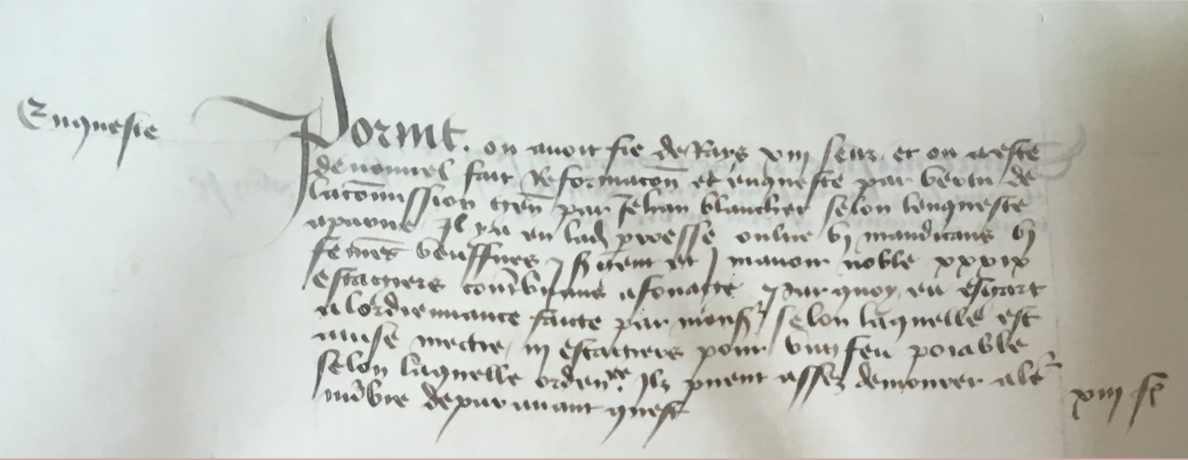 Enqueste
Pornit. ou avoit fié de Rays xiii feux et on a esté
de nouvel fait Reformacon et enqueste par vertu de
la commission par Jehan Blanchet selon l'enqueste
Il y a en lad parresse oultre vj mandicans vj
femes veuffves j et j manoir noble xxxix
estagiers contribuans a fouaige Pourquoy eu esgart
a l'ordiennance faicte par mons selon laquelle est
mise mectre iij estagiers pour un feu poiable
selon laquelle orden Ilz puent assez demourer a le
nobre de par avant quest
xiii fe